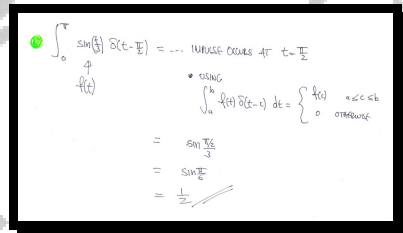 ∫₀^π sin(t/3) δ(t-π/2) = ... IMPULSE OCCURS AT t=π/2
f(t)
• USING
∫ₐᵇ f(t) δ(t-c) dt = { f(c) a≤c≤b
0 OTHERWISE
= sin (π/2)/3
= sin π/6
= 1/2